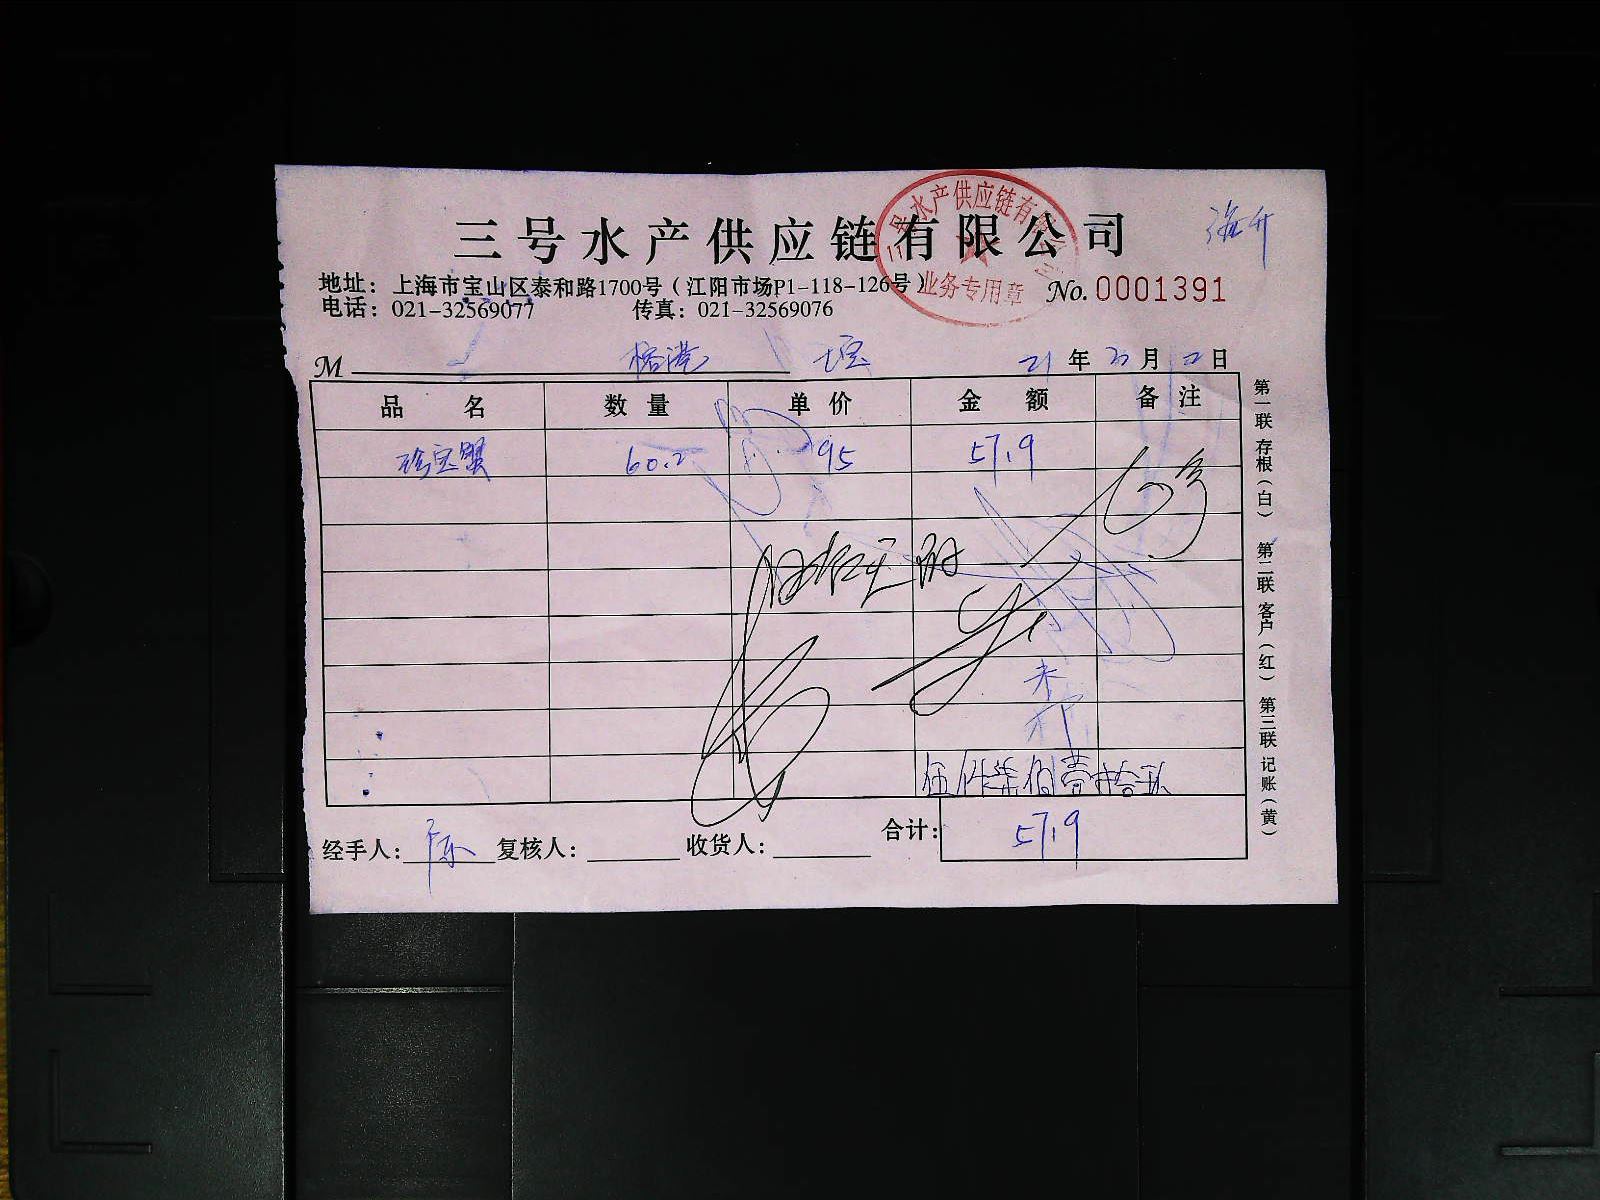 三号水产供应链有限公司
三号水产供应链有限公司
业务专用章
海升
地址：上海市宝山区泰和路1700号（江阳市场P1-118-126号）
No. 0001391
电话：021-32569077 传真：021-32569076
M 榕港 21年 月 日
品 名 数 量 单 价 金 额 备 注
珍宝蟹 60.2 95 5719
伍仟柒佰壹拾玖
合计： 5719
经手人： 复核人： 收货人：
第一联 存根（白） 第二联 客户（红） 第三联 记账（黄）